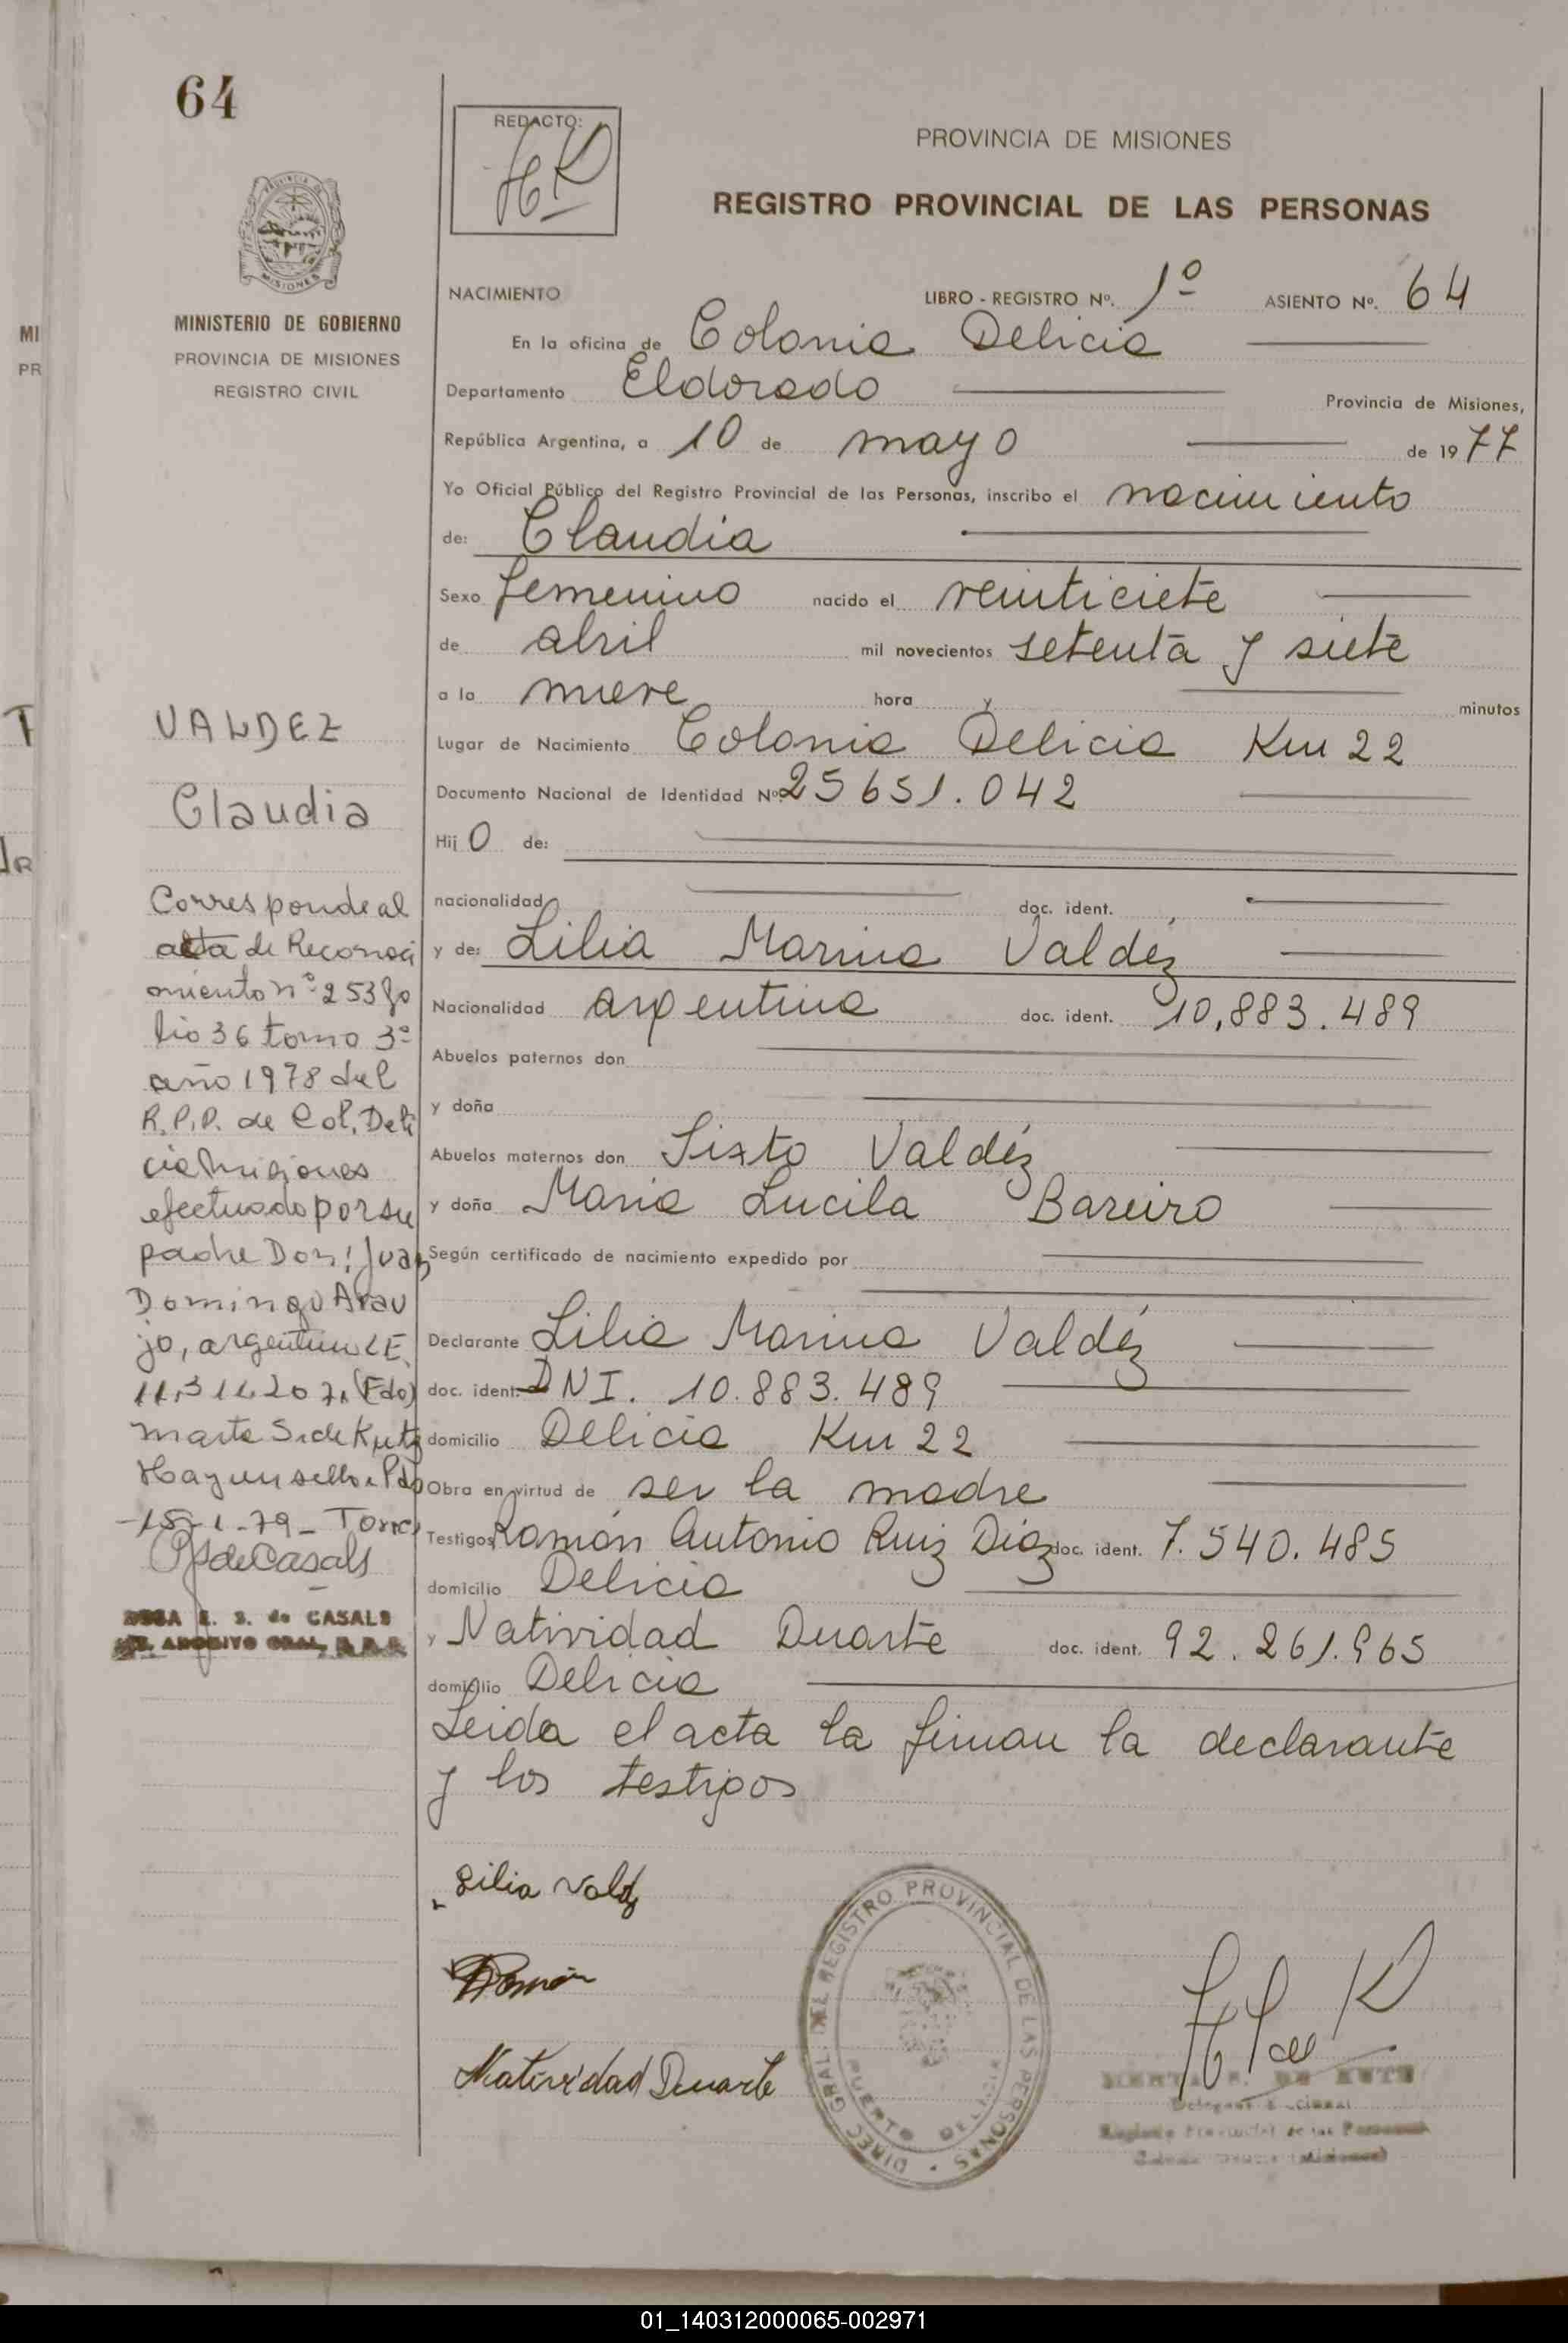 64
REDACTO:
HK
PROVINCIA DE MISIONES
REGISTRO PROVINCIAL DE LAS PERSONAS
PROVINCIA DE
MISIONES
MINISTERIO DE GOBIERNO
PROVINCIA DE MISIONES
REGISTRO CIVIL
NACIMIENTO LIBRO - REGISTRO Nº. 1º ASIENTO Nº. 64
En la oficina de Colonia Delicia
Departamento Eldorado Provincia de Misiones,
República Argentina, a 10 de mayo de 1977
Yo Oficial Público del Registro Provincial de las Personas, inscribo el nacimiento
de: Claudia
Sexo femenino nacido el veinticiete
de abril mil novecientos setenta y siete
a la nueve hora y minutos
Lugar de Nacimiento Colonia Delicia Km 22
Documento Nacional de Identidad Nº 25651.042
Hij O de:
nacionalidad doc. ident.
y de: Lilia Marina Valdéz
Nacionalidad argentina doc. ident. 10,883.489
Abuelos paternos don
y doña
Abuelos maternos don Sixto Valdéz
y doña Maria Lucila Bareiro
Según certificado de nacimiento expedido por
Declarante Lilia Marina Valdéz
doc. ident. DNI. 10.883.489
domicilio Delicia Km 22
Obra en virtud de ser la madre
Testigos Ramón Antonio Ruiz Diaz doc. ident. 7.540.485
domicilio Delicia
y Natividad Duarte doc. ident. 92.261.965
domicilio Delicia
Leida el acta la firman la declarante
y los testigos
VALDEZ
Claudia
Corresponde al
acta de Reconoci
miento nº 253 fo
lio 36 tomo 3º
año 1978 del
R.P.P. de Col. Deli
cia Misiones
efectuado por su
padre Don: Juan
Domingo Arau
jo, argentino LE.
(Fdo)
Marta S. de Kutz
Hay un sello. Pdo
P S de Casals
ROSA E. S. de CASALS
ARCHIVO GRAL. R.P.P.
Lilia Valdz
Ramón
Natividad Duarte
DIREC. GRAL. DEL REGISTRO PROVINCIAL DE LAS PERSONAS
PUERTO DELICIA
Registro Provincial de las Personas
(Misiones)
MI
PR
01_140312000065-002971